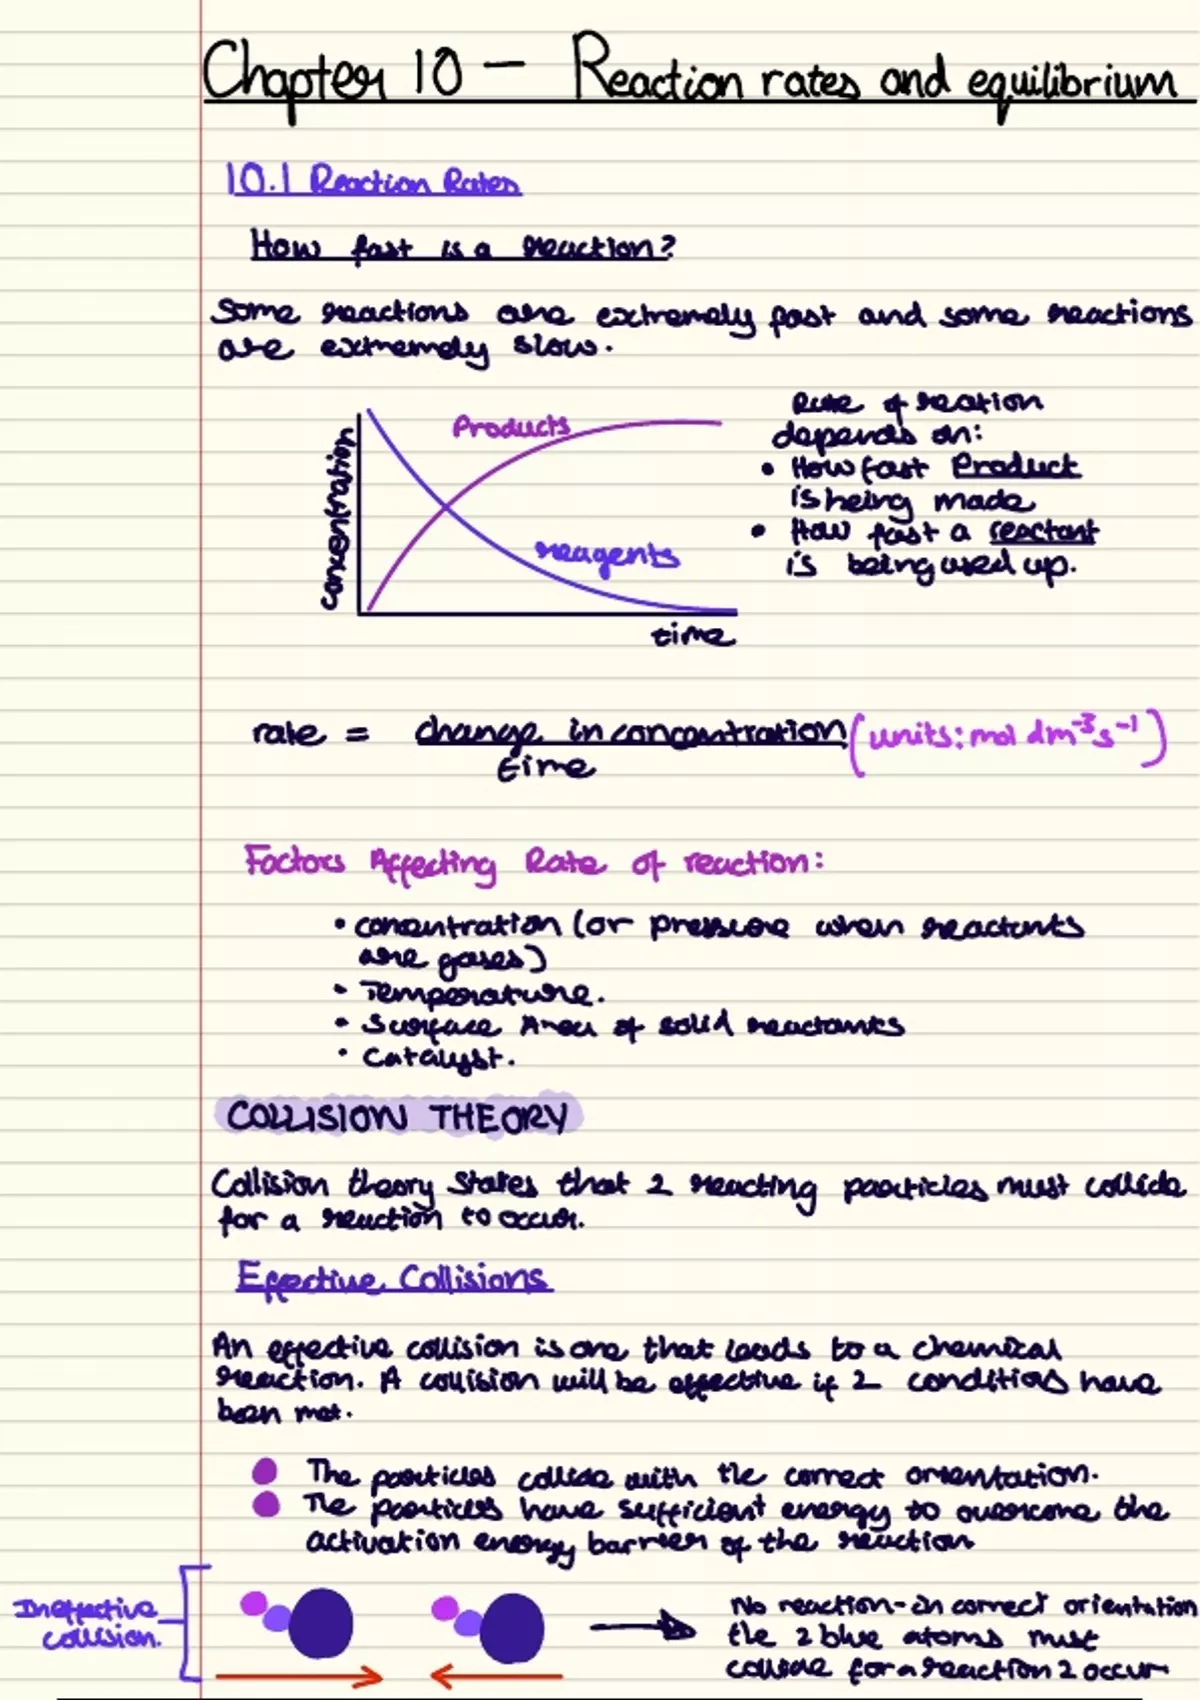 Chapter 10 - Reaction rates and equilibrium
10.1 Reaction Rates
How fast is a reaction?
Some reactions are extremely fast and some reactions
are extremely slow.
Products
reagents
concentration
time
Rate of reation
depends on:
• How fast Product
is being made
• How fast a reactant
is being used up.
rate = change in concentration (units: mol dm⁻³s⁻¹)
time
Factors Affecting Rate of reaction:
• concentration (or pressure when reactants
are gases)
• Temperature.
• Surface Area of solid reactants
• Catalyst.
COLLISION THEORY
Collision theory states that 2 reacting particles must collide
for a reaction to occur.
Effective Collisions
An effective collision is one that leads to a chemical
reaction. A collision will be effective if 2 conditions have
been met.
The particles collide with the correct orientation.
The particles have sufficient energy to overcome the
activation energy barrier of the reaction
Ineffective
collision.
No reaction - in correct orientation
the 2 blue atoms must
collide for a reaction 2 occur